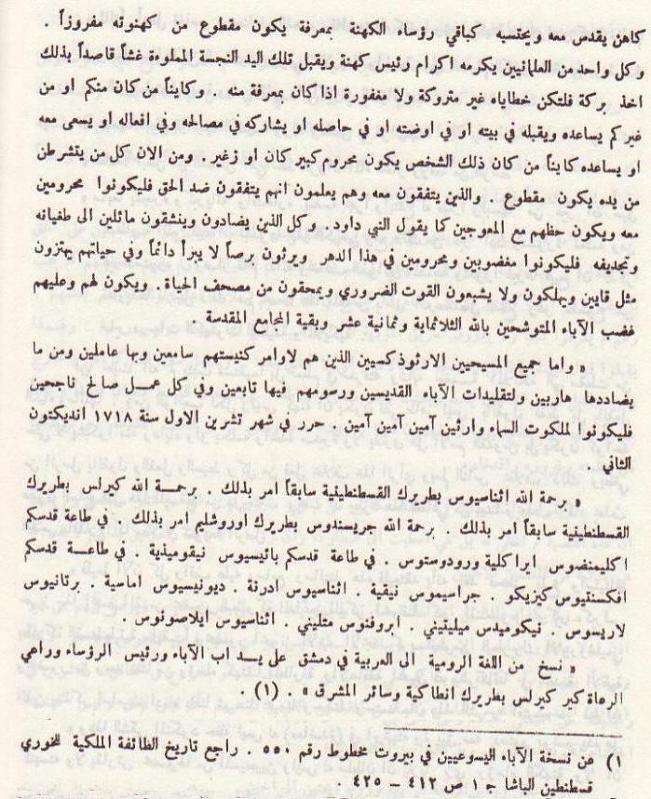 كاهن يقدس معه ويحتسبه كباقي رؤساء الكهنة بمعرفة يكون مقطوع من كهنوته مفروزاً .
وكل واحد من العلمانيين يكرمه اكرام رئيس كهنة ويقبل تلك اليد النجسة المملوءة غشاً قاصداً بذلك
اخذ بركة فلتكن خطاياه غير متروكة ولا مغفورة اذا كان بمعرفة منه . وكايناً من كان منكم او من
غيركم يساعده ويقبله في بيته او في اوضته او في حاصله او يشاركه في مصالحه وفي افعاله او يسعى معه
او يساعده كايناً من كان ذلك الشخص يكون محروم كبير كان او زغير . ومن الان كل من يتشرطن
من يده يكون مقطوع . والذين يتفقون معه وهم يعلمون انهم يتفقون ضد الحق فليكونوا محرومين
معه ويكون حظهم مع المعوجين كا يقول النبي داود . وكل الذين يضادون وينشقون مائلين الى طغيانه
وتجديفه فليكونوا مغضوبين ومحرومين في هذا الدهر ويرثون برصاً لا يبرأ دائماً وفي حياتهم يهتزون
مثل قايين ويهلكون ولا يشبعون القوت الضروري ويمحقون من مصحف الحياة . ويكون لهم وعليهم
غضب الآباء المتوشحين بالله الثلاثماية وثمانية عشر وبقية المجامع المقدسة
« واما جميع المسيحيين الارثوذكسيين الذين هم لاوامر كنيستهم سامعين وبها عاملين ومن ما
يضاددها هاربين ولتقليدات الآباء القديسين ورسومهم فيها تابعين وفي كل عمـل صالح ناجحين
فليكونوا لملكوت السماء وارثين آمين آمين آمين . حرر في شهر تشرين الاول سنة ١٧١٨ انديكتون
الثاني
« برحمة الله اثناسيوس بطريرك القسطنطينية سابقاً امر بذلك . برحمـة الله كيرلس بطريرك
القسطنطينية سابقاً امر بذلك . برحمة الله جريسندوس بطريرك اوروشليم امر بذلك . في طاعة قدسكم
اكليمنضوس ايراكلية ورودوستوس . في طاعة قدسكم بائيسيوس نيقوميذية . في طاعـة قدسكم
افكسنتيوس كيزيكو . جراسيموس نيقية . اثناسيوس ادرنة . ديونيسيوس اماسية . برثانيوس
لاريسوس . نيكوميدس ميليتيني . ايروفنوس متليني . اثناسيوس ايلاصونوس .
« نسخ من اللغة الرومية الى العربية في دمشق على يـد اب الآباء ورئيس الرؤساء وراعي
الرعاة كير كيرلس بطريرك انطاكية وسائر المشرق » . (١) .
١) عن نسخة الآباء اليسوعيين في بيروت مخطوط رقم ٥٥٠ . راجع تاريخ الطائفة الملكية للخوري
قسطنطين الباشا ج ١ ص ٤١٢ — ٤٢٥